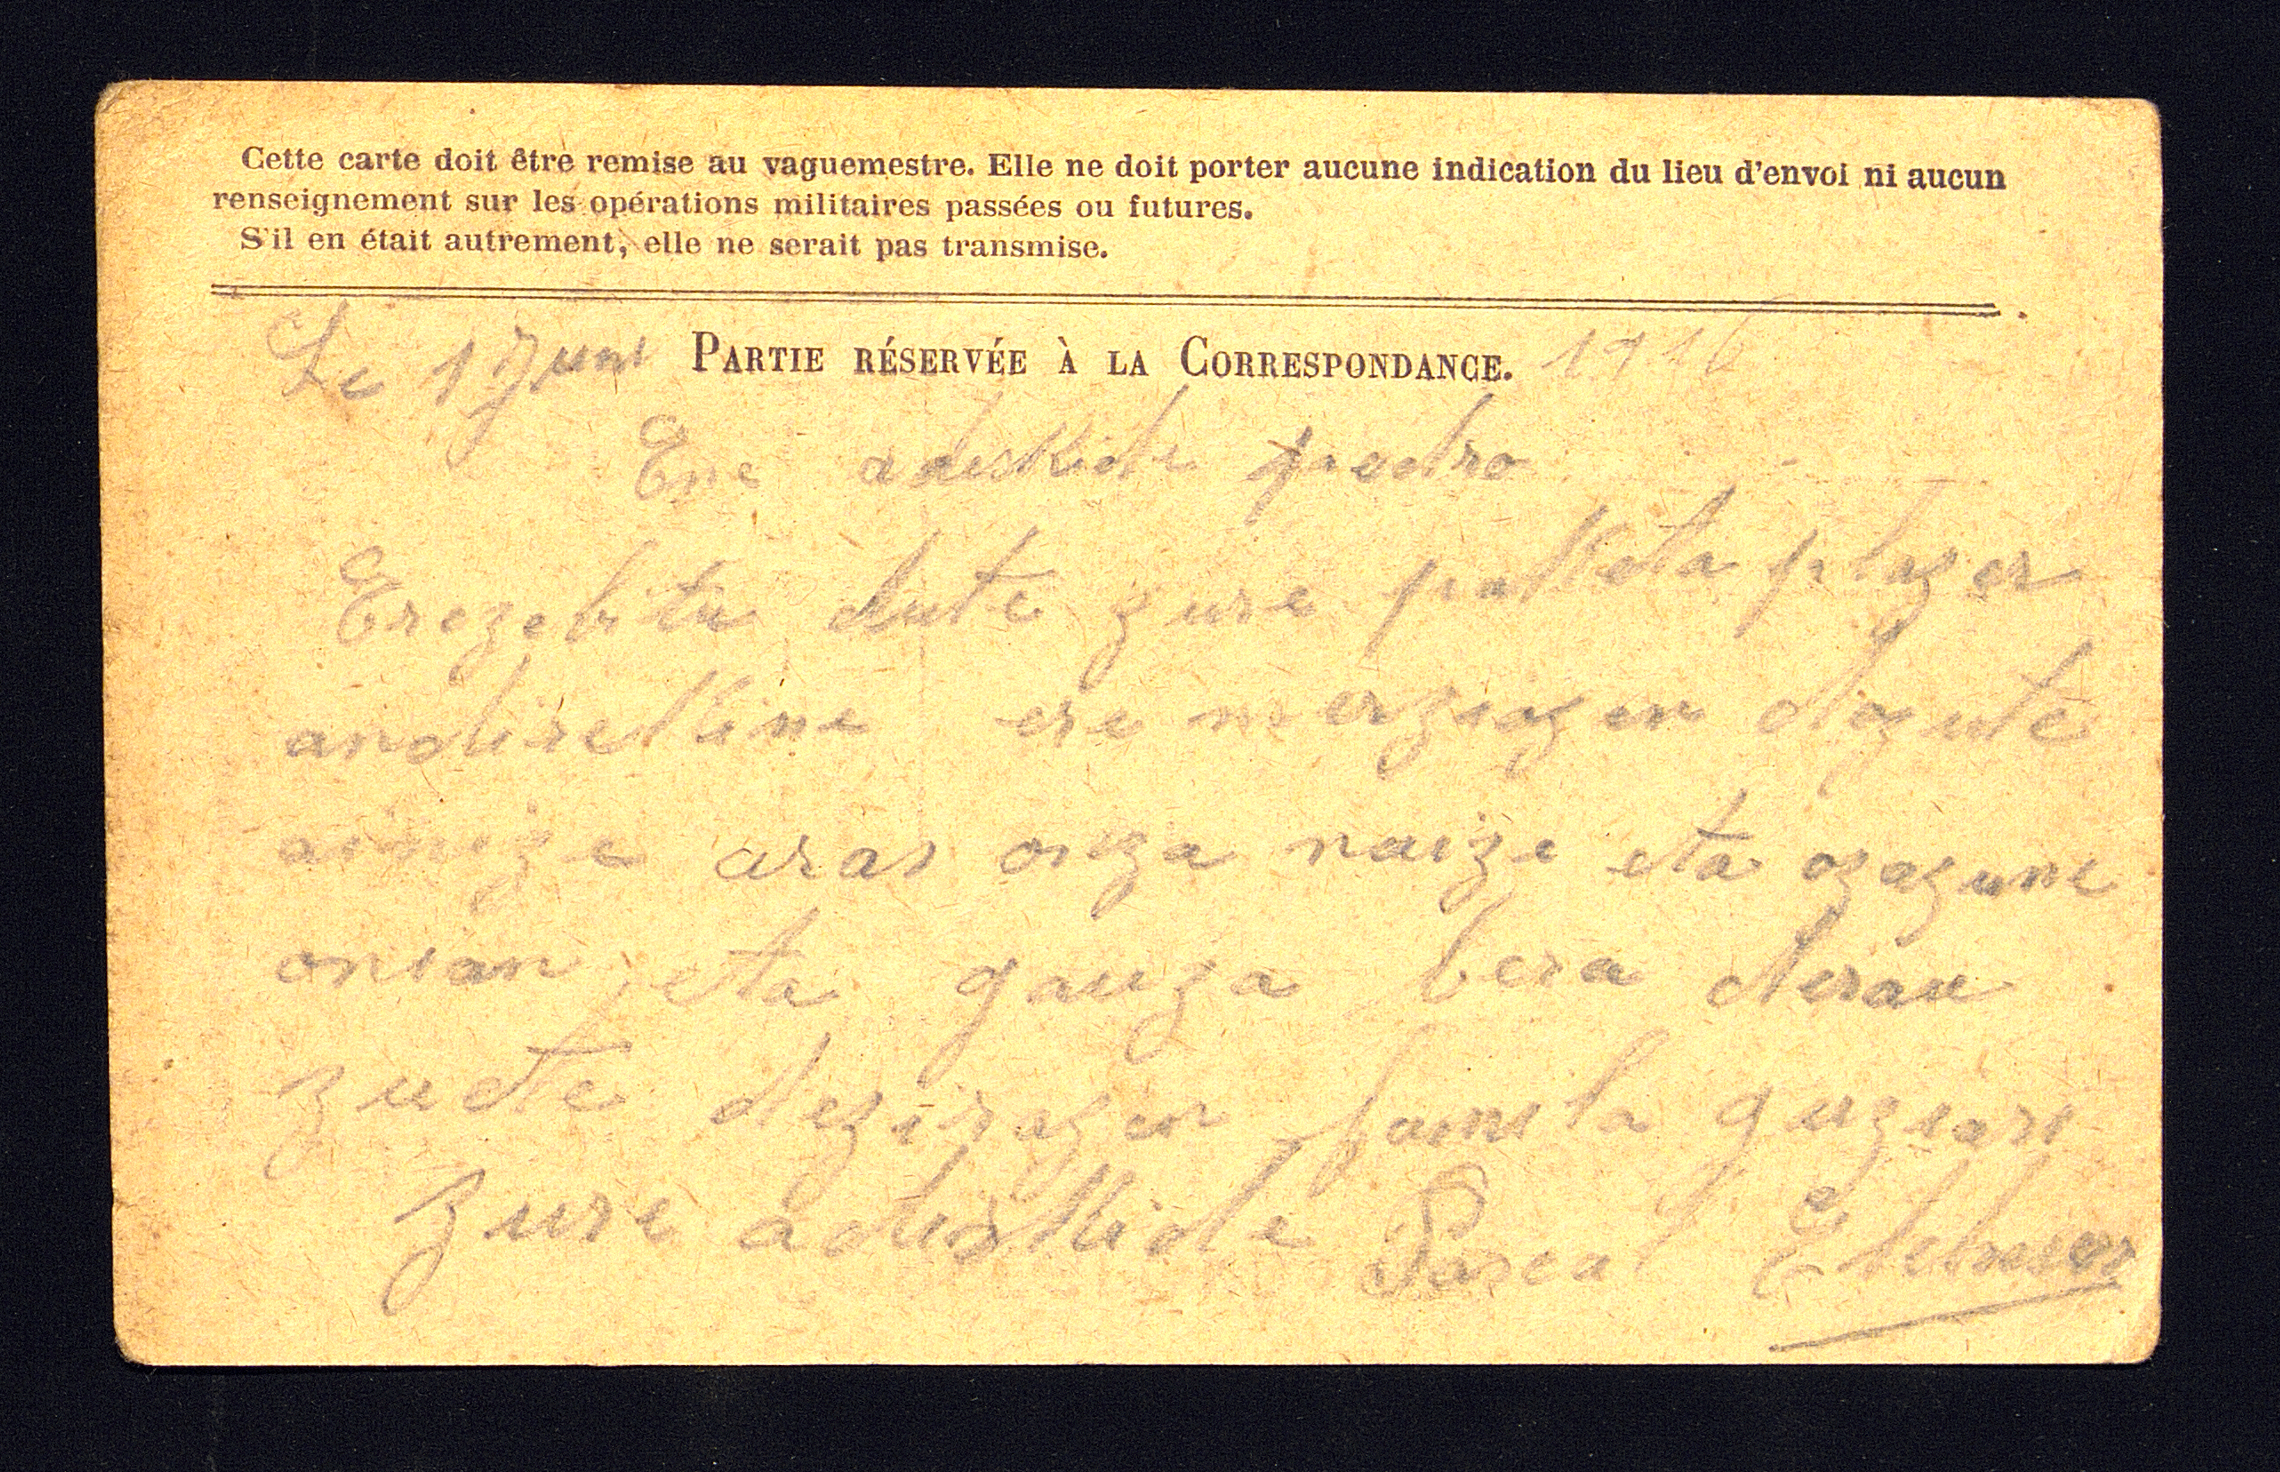 Cette carte doit être remise au vaguemestre. Elle ne doit porter aucune indication du lieu d'envoi ni aucun
renseignement sur les opérations militaires passées ou futures.
S'il en était autrement, elle ne serait pas transmise.
Le 1 Juni PARTIE RÉSERVÉE À LA CORRESPONDANCE. 1916
Ene adeskide pedro
Erezebitu dute zure paketa plazer
andirekine ere merziazen dazute
aras onza naize eta ozazune
onian eta gauza bera derau
zuete dezirazen famila guziari
Zure adiskide Parcal